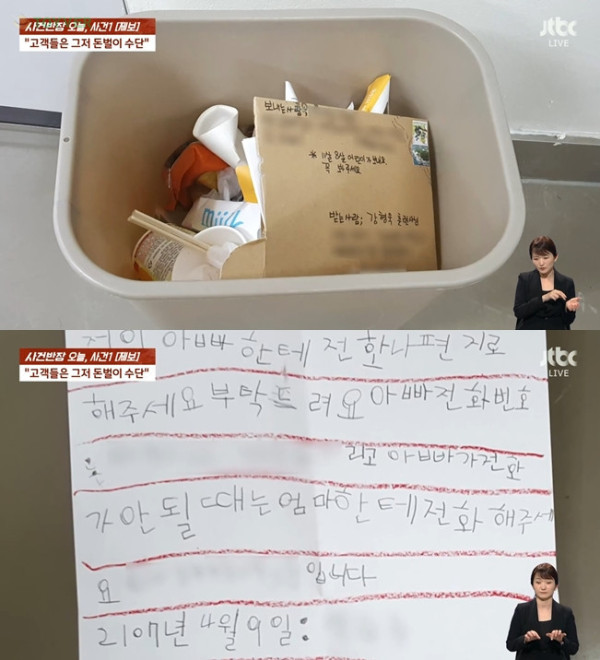 사건반장 오늘, 사건1 [제보]
"고객들은 그저 돈벌이 수단"
jtbc
LIVE
보내는사람
* 11살 8살 어린이가 보내요
꼭 봐주세요
받는사람; 강형욱 훈련사님
miilk
사건반장 오늘, 사건1 [제보]
"고객들은 그저 돈벌이 수단"
jtbc
LIVE
아빠 한테 전화나편지로
해주세요 부탁드려요 아빠전화번호
는
리고 아빠가전화
가 안될 때는 엄마한테전화 해주세
요
입니다
2107년 4월 9일: